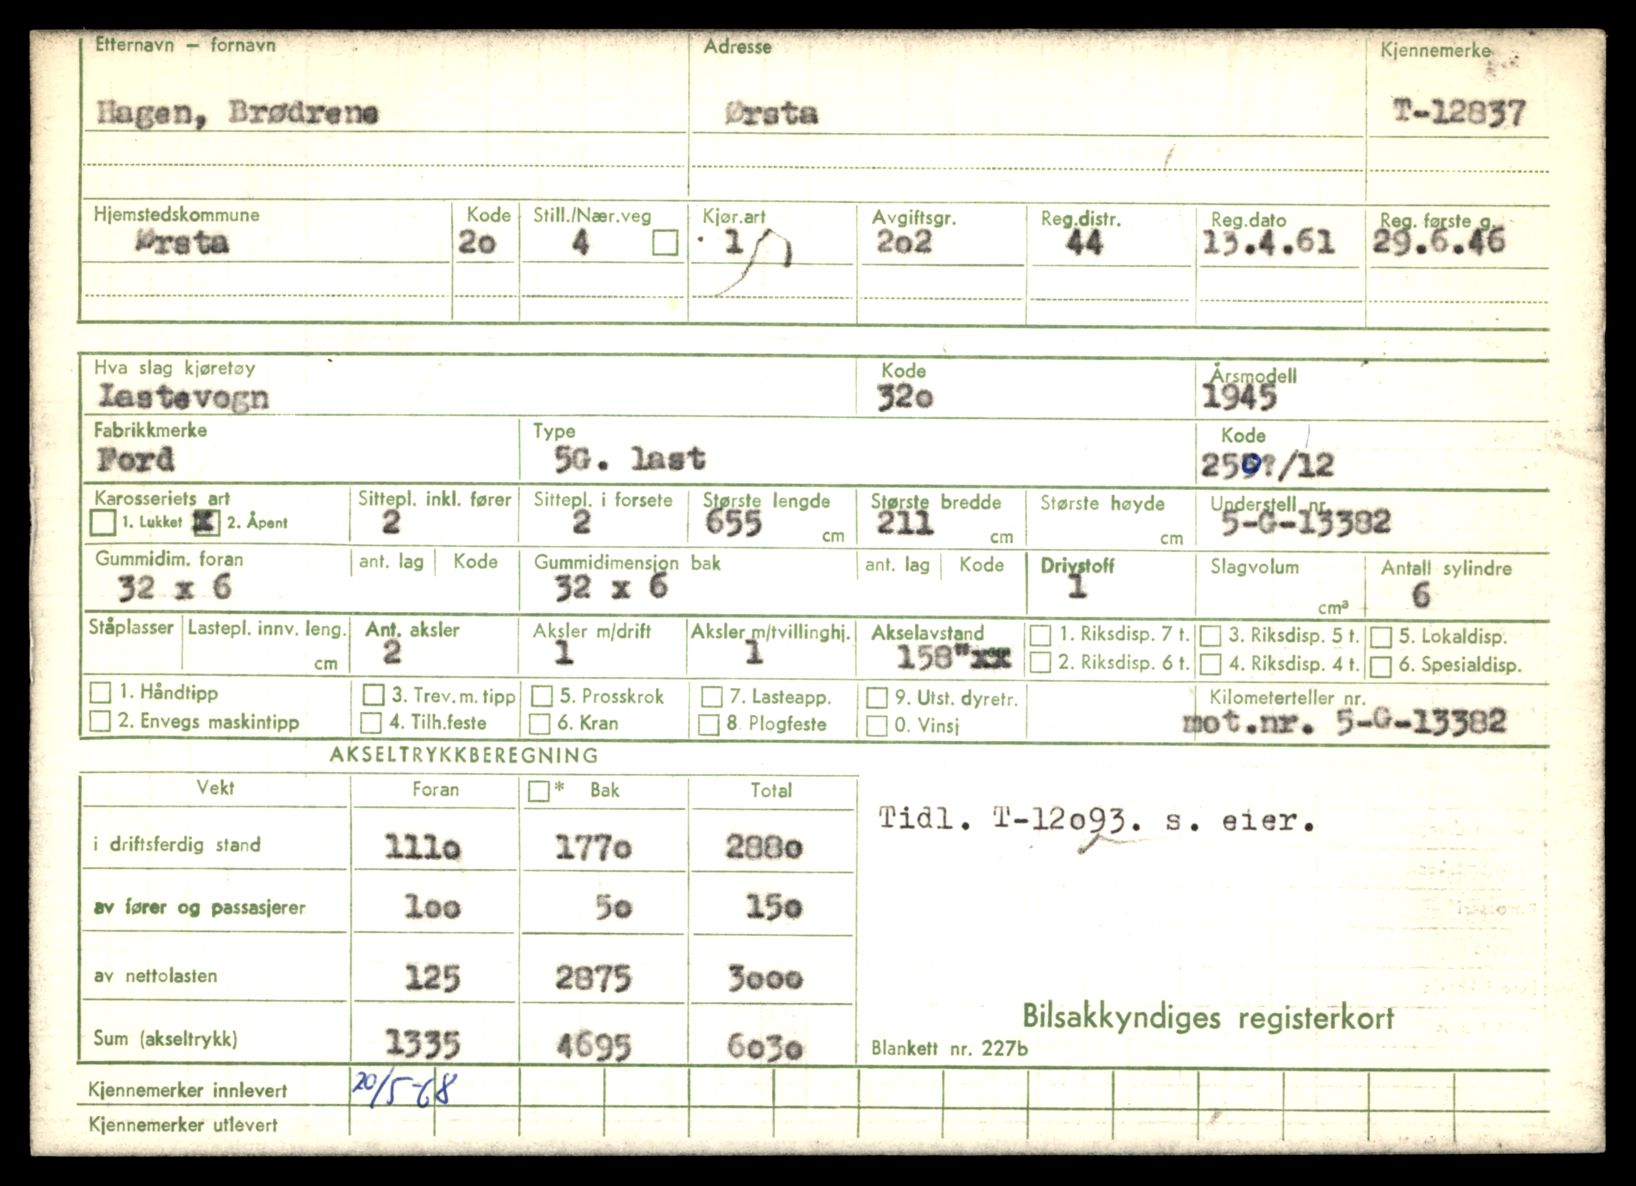 Etternavn – fornavn Adresse Kjennemerke
Hagen, Brødrene Ørsta T-12837
Hjemstedskommune Kode Still./Nær.veg Kjør.art Avgiftsgr. Reg.distr. Reg.dato Reg. første g.
Ørsta 2o 4 1 2o2 44 13.4.61 29.6.46
Hva slag kjøretøy Kode Årsmodell
Lastevogn 32o 1945
Fabrikkmerke Type Kode
Ford 5G. last /12
Karosseriets art Sittepl. inkl. fører Sittepl. i forsete Største lengde Største bredde Største høyde Understell nr.
1. Lukket x 2. Åpent 2 2 655 cm 211 cm cm 5-G-13382
Gummidim. foran ant. lag Kode Gummidimensjon bak ant. lag Kode Drivstoff Slagvolum Antall sylindre
32 x 6 32 x 6 1 cm³ 6
Ståplasser Lastepl. innv. leng. Ant. aksler Aksler m/drift Aksler m/tvillinghj. Akselavstand 1. Riksdisp. 7 t. 3. Riksdisp. 5 t. 5. Lokaldisp.
cm 2 1 1 158"xx 2. Riksdisp. 6 t. 4. Riksdisp. 4 t. 6. Spesialdisp.
1. Håndtipp 3. Trev. m. tipp 5. Prosskrok 7. Lasteapp. 9. Utst. dyretr. Kilometerteller nr.
2. Envegs maskintipp 4. Tilh.feste 6. Kran 8 Plogfeste 0. Vinsj mot.nr. 5-G-13382
AKSELTRYKKBEREGNING
Vekt Foran * Bak Total
Tidl. T-12o93. s. eier.
i driftsferdig stand 111o 177o 288o
av fører og passasjerer 1oo 5o 15o
av nettolasten 125 2875 3ooo
Bilsakkyndiges registerkort
Sum (akseltrykk) 1335 4695 6o3o Blankett nr. 227b
Kjennemerker innlevert 20/5-68
Kjennemerker utlevert